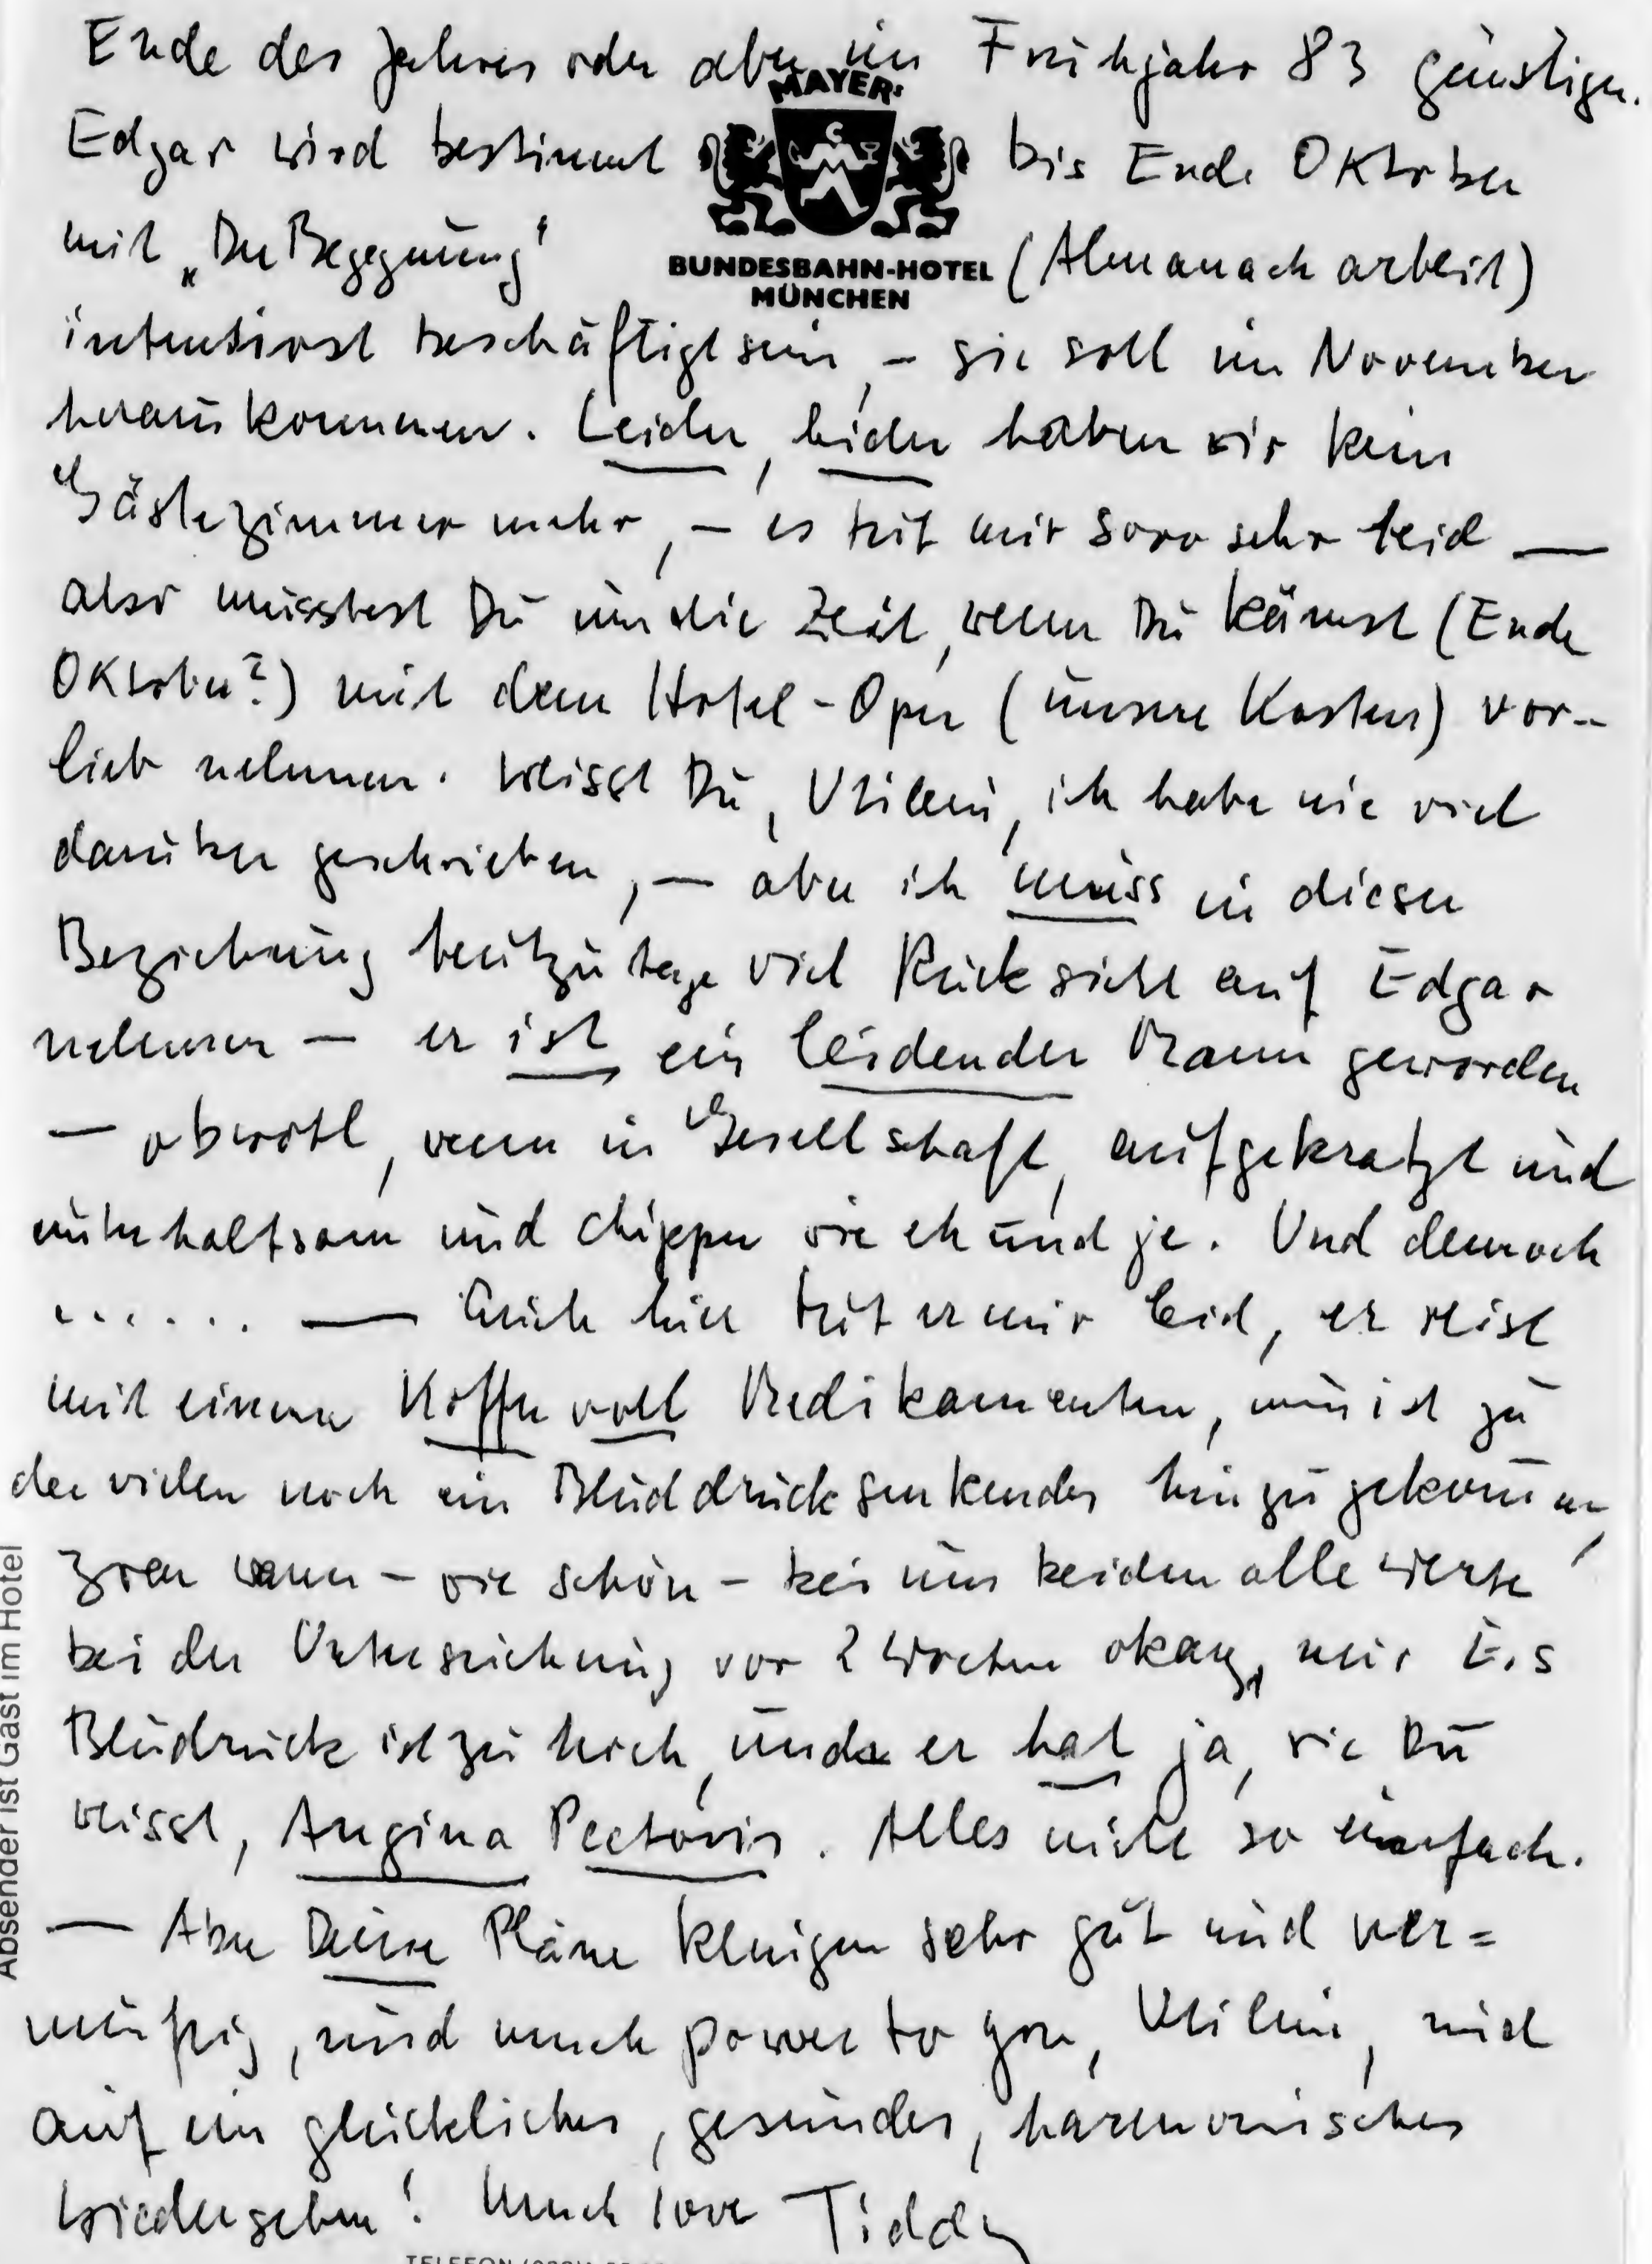 Ende des Jahres oder aber im Frühjahr 83 günstiger.
MAYER'
Edgar wird bestimmt bis Ende Oktober
mit „Die Begegnung" (Almanach arbeit)
BUNDESBAHN-HOTEL
MÜNCHEN
intensivst beschäftigt sein, – sie soll im November
herauskommen. Leider, leider haben wir kein
Gästezimmer mehr, – es tut mir sooo sehr leid —
also müsstest Du um die Zeit, wenn Du kämst (Ende
Oktober?) mit dem Hotel-Oper (unsere Kosten) vor-
lieb nehmen. Weisst Du, Utilein, ich habe nie viel
darüber geschrieben, — aber ich muss in dieser
Beziehung heutzutage viel Rücksicht auf Edgar
nehmen — er ist ein leidender Mann geworden
— obwohl, wenn in Gesellschaft, aufgekratzt und
unterhaltsam und chipper wie eh und je. Und dennoch
...... — Auch hier tut er mir leid, er reist
mit einem Koffer voll Medikamenten, nun ist zu
den vielen noch ein Bluddrucksenkendes hinzugekommen,
zwar waren – wie schön – bei uns beiden alle Werte
bei der Untersuchung vor 2 Wochen okay, nur E.s
Bludruck ist zu hoch, und er hat ja, wie Du
weisst, Angina Pectoris. Alles nicht so einfach.
— Aber Deine Pläne klingen sehr gut und ver=
nünftig, und much power to you, Utilein, und
auf ein glückliches, gesundes, harmonisches
Wiedersehen! Much love Tiddy
Absender ist Gast im Hotel